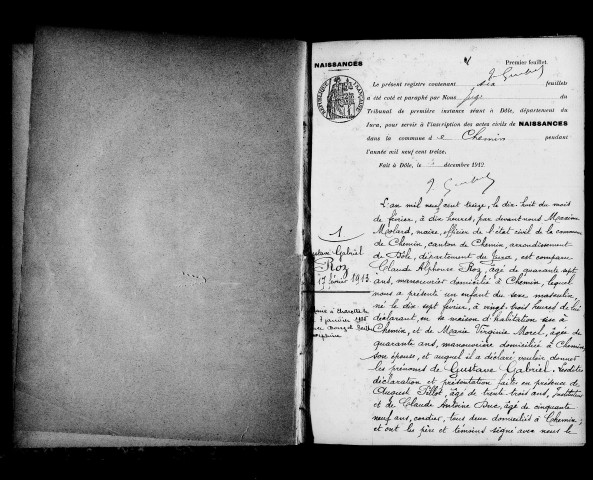 NAISSANCES
Premier feuillet.
Le présent registre contenant six feuillets
a été coté et paraphé par Nous Juge du
Tribunal de première instance séant à Dôle, département du
Jura, pour servir à l'inscription des actes civils de NAISSANCES
dans la commune de Chemin pendant
l'année mil neuf cent treize.
Fait à Dôle, le décembre 1912
RÉPUBLIQUE FRANÇAISE
1
Gustave Gabriel
Roz
17 février 1913
L'an mil neuf cent treize, le dix huit du mois
de février, à dix heures, par devant nous Maxime
maire, officier de l'état civil de la commune
de Chemin, canton de Chemin, arrondissement
de Dôle, département du Jura, est comparu
Claude Alphonse Roz, âgé de quarante sept
ans, manouvrier domicilié à Chemin, lequel
nous a présenté un enfant du sexe masculin,
né le dix sept février, à vingt trois heures de lui
déclarant, en sa maison d'habitation sise à
Chemin, et de Maria Virginie Morel, âgée de
quarante ans, manouvrière domiciliée à Chemin,
son épouse, et auquel il a déclaré vouloir donner
les prénoms de Gustave Gabriel. Lesdites
déclaration et présentation faites en présence de
August Pillot, âgé de trente trois ans, Instituteur
et de Claude Antoine Duc, âgé de cinquante
neuf ans, cordier, tous deux domiciliés à Chemin,
et ont les père et témoins signé avec nous le